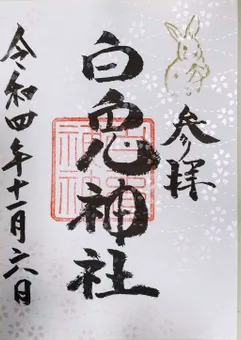 参拝
白兎神社
令和四年十一月六日